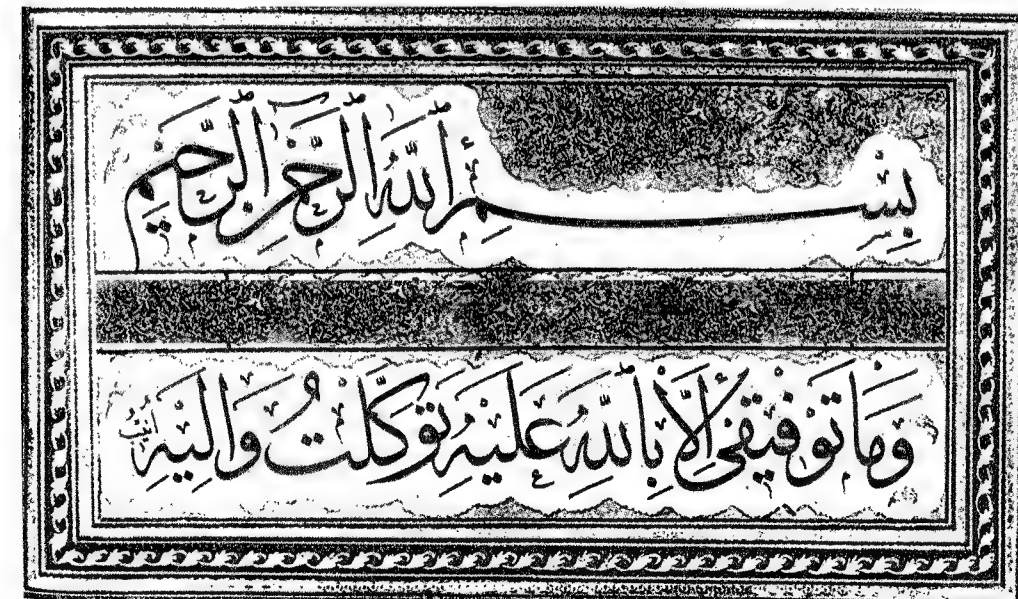 بِسْمِ اللَّهِ الرَّحْمَنِ الرَّحِيمِ
وَمَا تَوْفِيقِي إِلَّا بِاللَّهِ عَلَيْهِ تَوَكَّلْتُ وَإِلَيْهِ أُنِيبُ